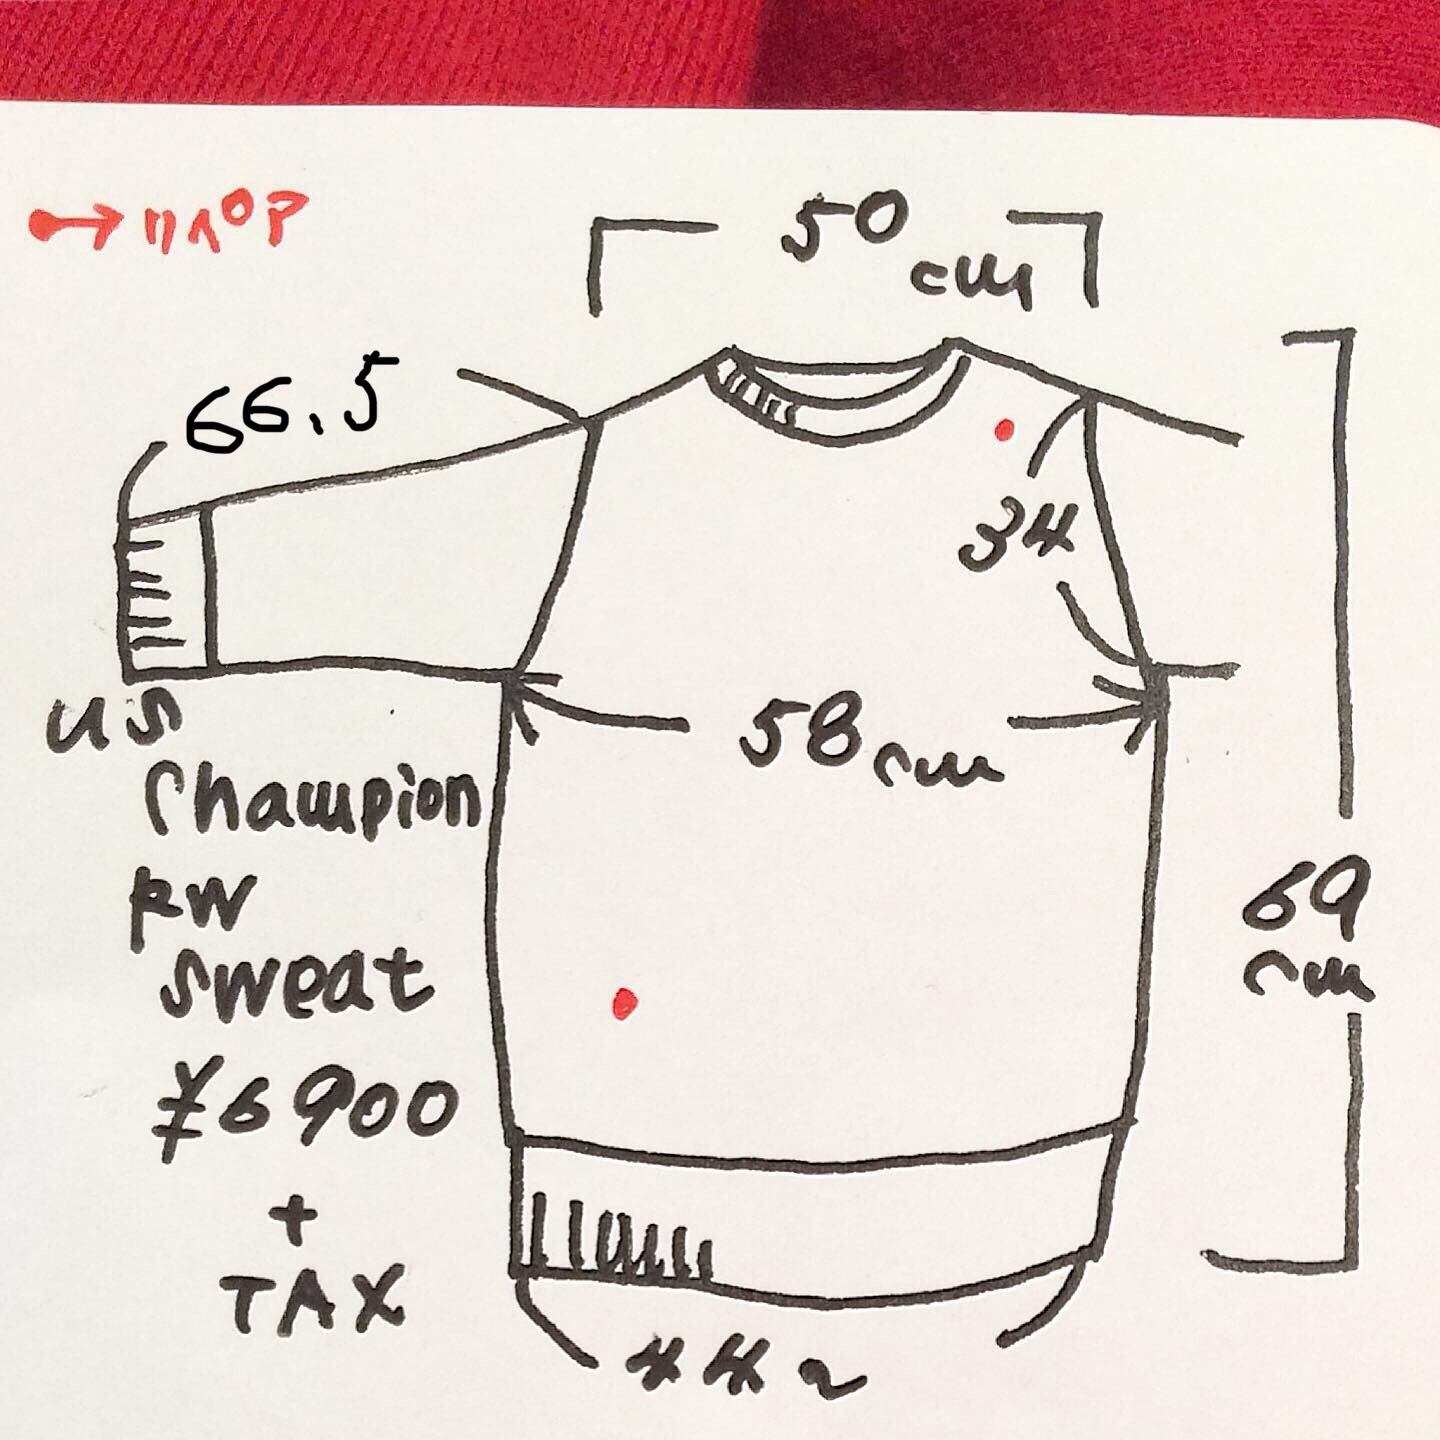 →リペア
50
cm
66.5
34
58cm
69
cm
US
Champion
RW
Sweat
¥6900
+
TAX
44〜